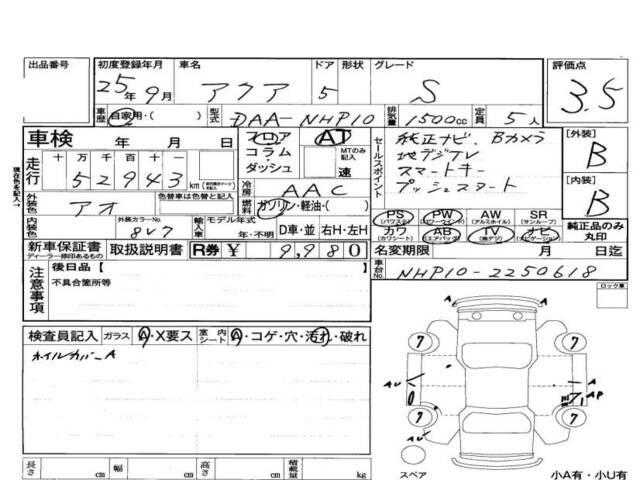 出品番号 初度登録年月 車名 ドア 形状 グレード 評価点
25年 9月 アクア 5 S 3.5
車歴 自家用・( ) 型式 DAA-NHP10 排気量 1500cc 定員 5人
車検 年 月 日 フロア AT セールスポイント 純正ナビ、Bカメラ [外装]
走行 十 万 千 百 十 一 コラム MTのみ記入 地デジTV B
52943 km ダッシュ 速 スマートキー [内装]
現在色を記入→ 冷房 AAC プッシュスタート B
外装色 アオ 色替車は色替と記入 燃料 ガソリン・軽油・( ) PS (パワステ) PW (パワーウィンドウ) AW (アルミホイル) SR (サンルーフ) 純正品のみ丸印
内装色 外装カラーNo. 8V7 輸入車 モデル年式 年・不明 D車・並 右H・左H カワ (カワシート) AB (エアバッグ) TV (地デジ) ナビ (ナビゲーション)
新車保証書 ディーラー捺印あるもの 取扱説明書 R券 ¥ 9,980 名変期限 月 日迄
注意事項 後日品【 】 車台No. NHP10-2250618
不具合箇所等 ロック車
検査員記入 ガラス A・X要ス 室内シート A・コゲ・穴・汚れ・破れ
ホイルカバーA
A A
7 7
AU A
AP
7 7
AU
長さ cm 幅 cm 高さ cm 積載量 kg スペア 小A有・小U有